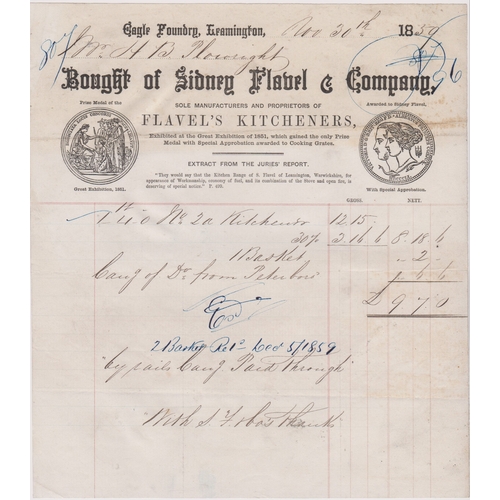 Eagle Foundry, Leamington, Nov 30th 1859
807
Mr H B Plowright
96
Bought of Sidney Flavel & Company,
Prize Medal of the
Great Exhibition, 1851.
SOLE MANUFACTURERS AND PROPRIETORS OF
FLAVEL'S KITCHENERS,
Exhibited at the Great Exhibition of 1851, which gained the only Prize
Medal with Special Approbation awarded to Cooking Grates.
Awarded to Sidney Flavel,
With Special Approbation.
EXTRACT FROM THE JURIES' REPORT.
"They would say that the Kitchen Range of S. Flavel of Leamington, Warwickshire, for
appearance of Workmanship, economy of fuel, and its combination of the Stove and open fire, is
deserving of special notice."
GROSS. NETT.
No 2a Kitchener 12.15.
30% 3.16 6 8.18.6
1 Basket " 2 "
Cang of Do from Peterboro 6 6
£9 7 0
2 Basket Retd Decr 5/1859
by rails Cang Paid through
With S F & Cos thanks